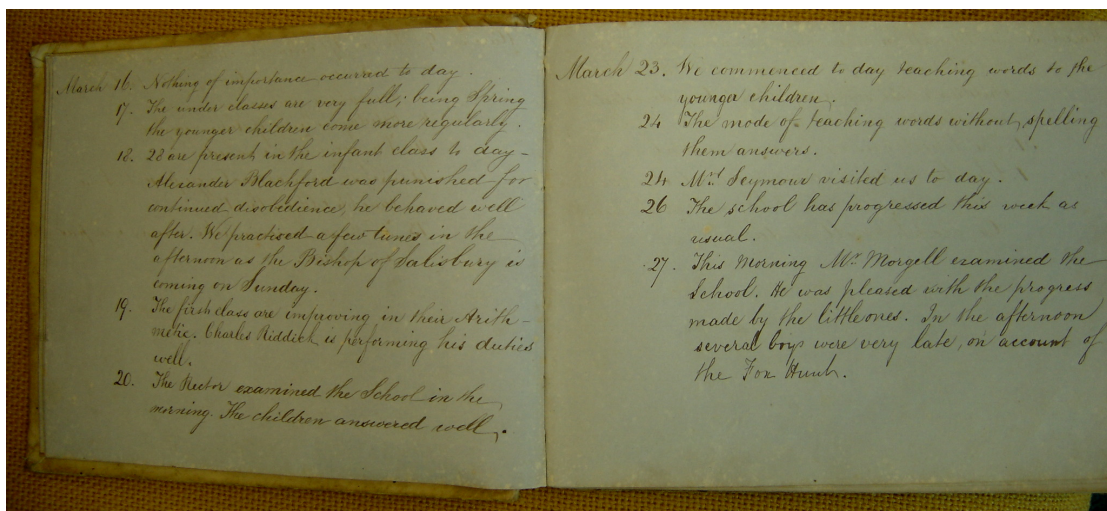 March 16. Nothing of importance occurred to day.
17. The under classes are very full; being Spring
the younger children come more regularly.
18. 28 are present in the infant class to day –
Alexander Blachford was punished for
continued disobedience, he behaved well
after. We practised a few tunes in the
afternoon as the Bishop of Salisbury is
coming on Sunday.
19. The first class are improving in their Arith-
metic. Charles Riddick is performing his duties
well.
20. The Rector examined the School in the
morning. The children answered well.
March 23. We commenced to day teaching words to the
younger children.
24 The mode of teaching words without spelling
them answers.
24 Mrs Seymour visited us to day.
26 The school has progressed this week as
usual.
27. This Morning Mr Morgell examined the
School. He was pleased with the progress
made by the little ones. In the afternoon
several boys were very late, on account of
the Fox Hunt.